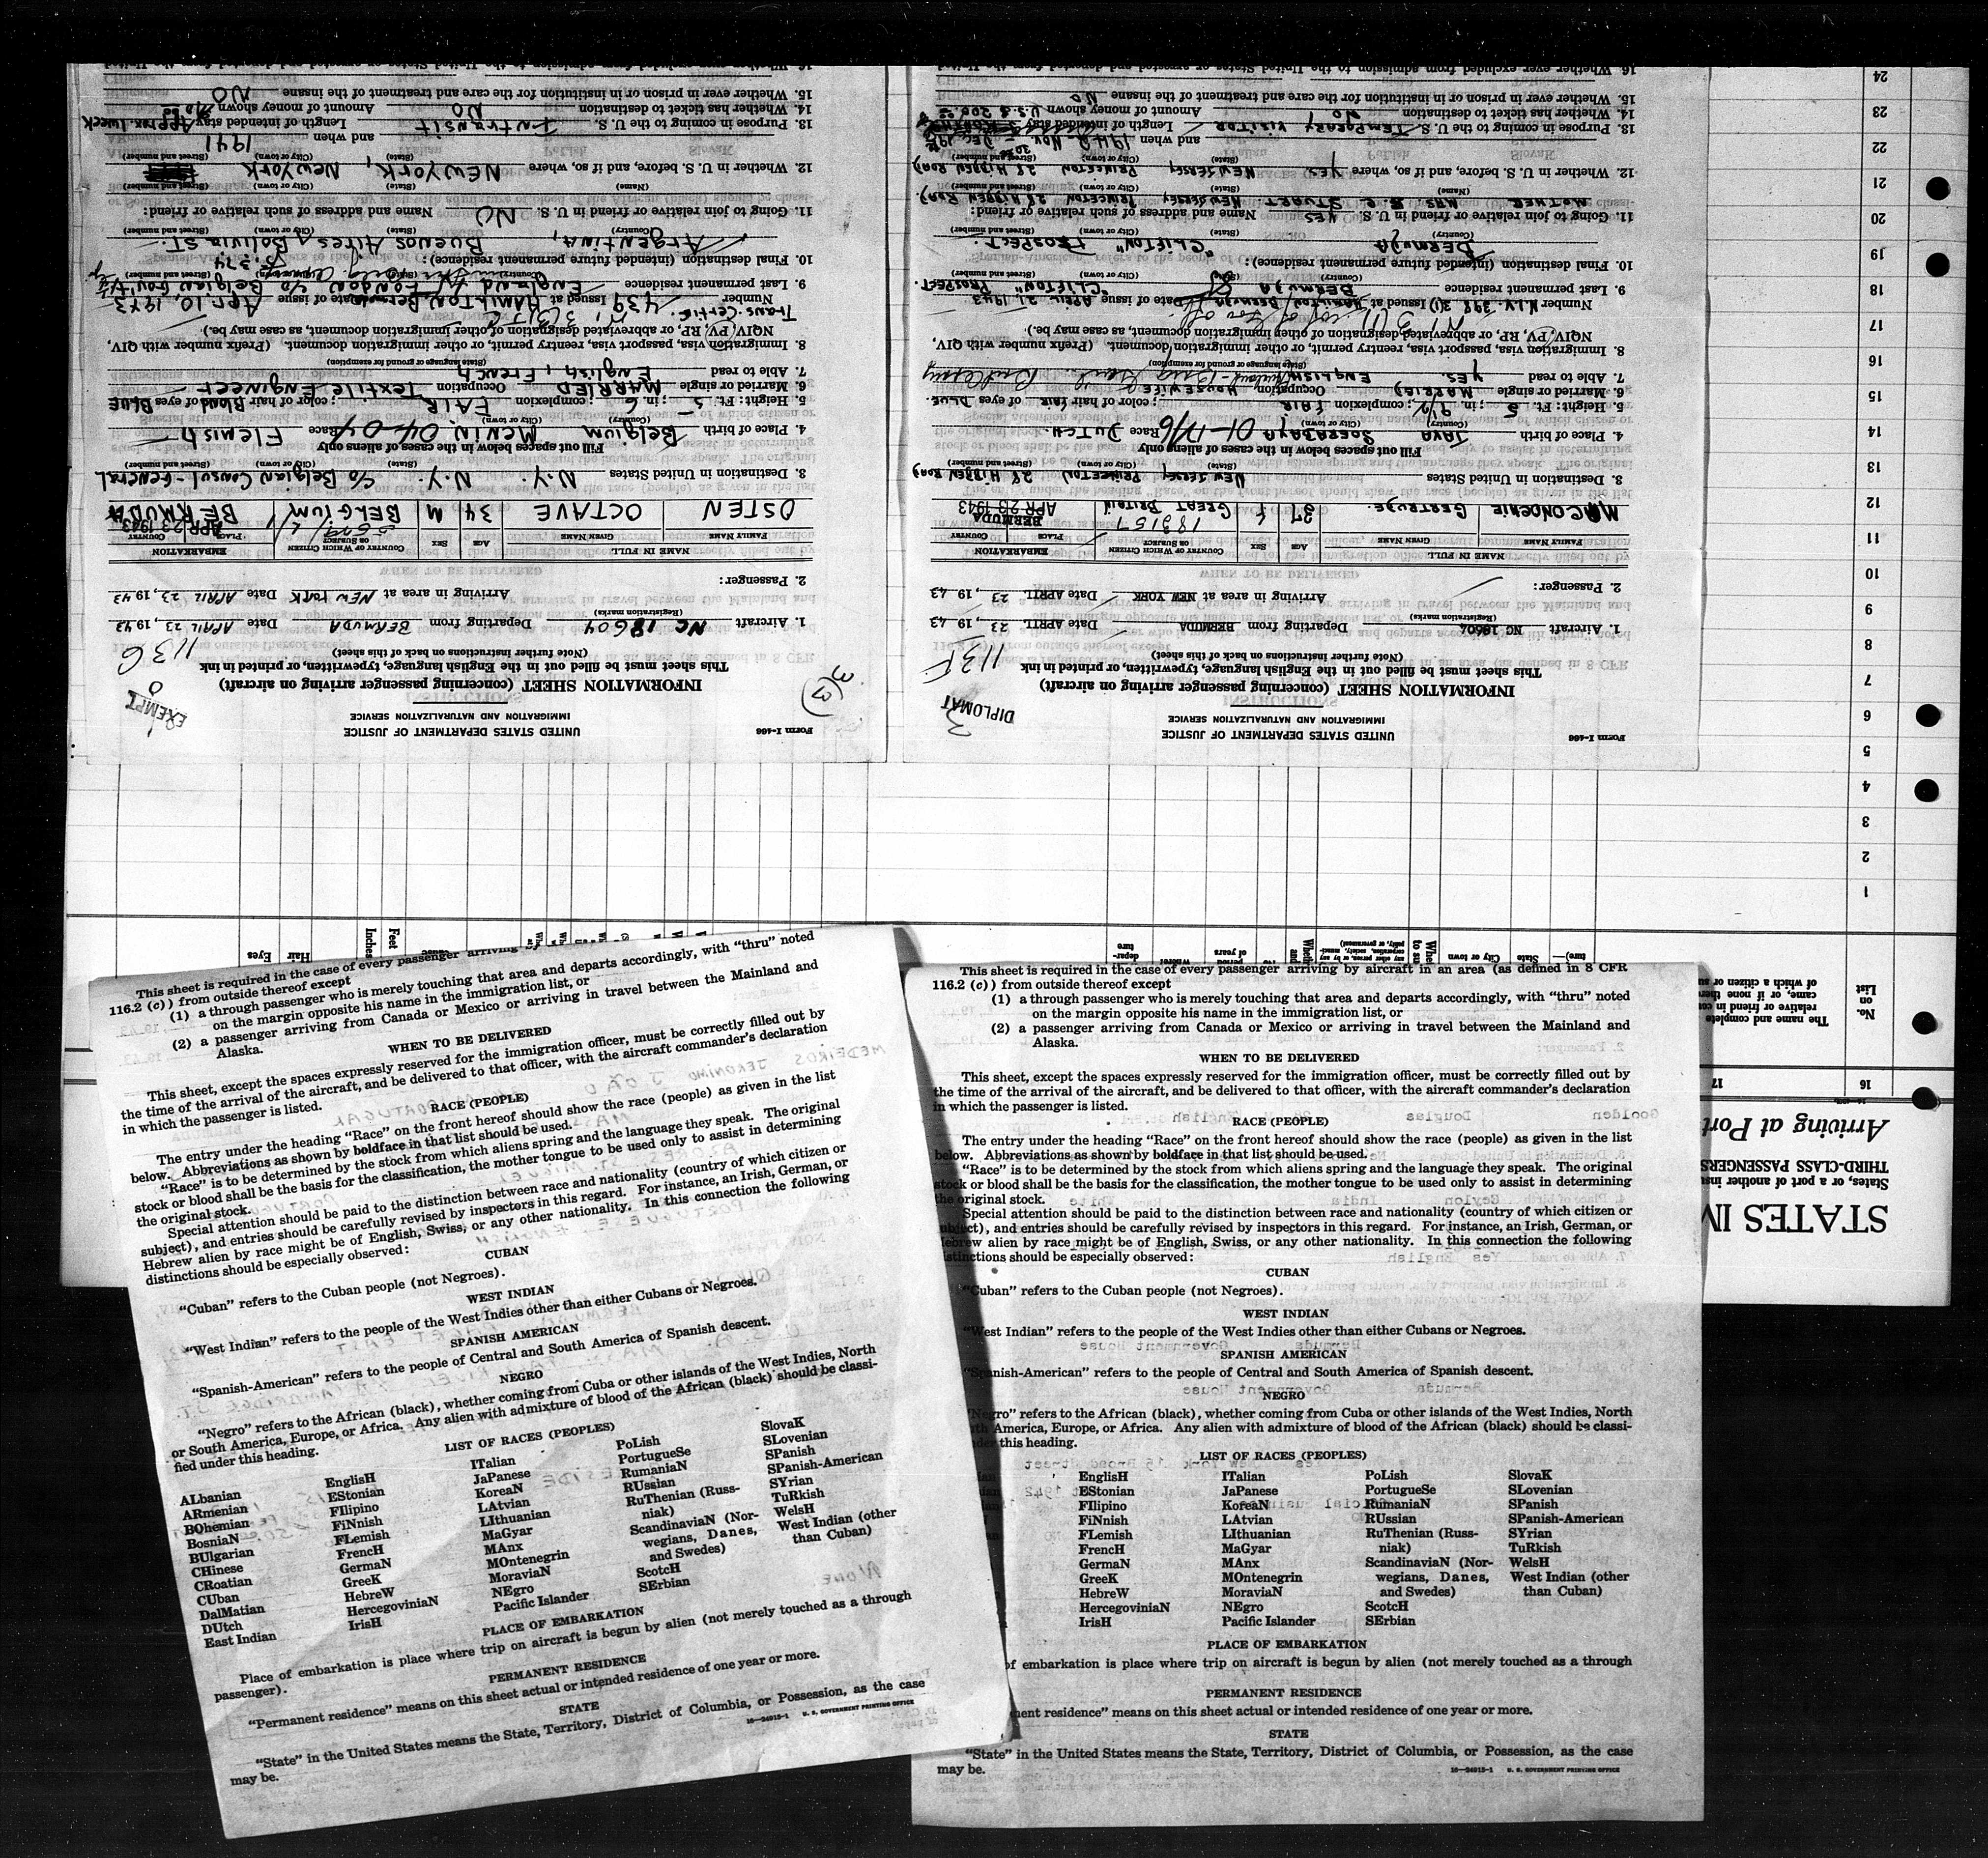 Form I-466
UNITED STATES DEPARTMENT OF JUSTICE
IMMIGRATION AND NATURALIZATION SERVICE
DIPLOMAT
INFORMATION SHEET (concerning passenger arriving on aircraft)
This sheet must be filled out in the English language, typewritten, or printed in ink
(Note further instructions on back of this sheet)
113F
1. Aircraft NC 18604 Departing from BERMUDA Date APRIL 23, 1943
(Registration marks)
Arriving in area at NEW YORK Date APRIL 23, 1943
2. Passenger:
NAME IN FULL AGE SEX COUNTRY OF WHICH CITIZEN OR SUBJECT EMBARKATION
FAMILY NAME GIVEN NAME PLACE COUNTRY
McCONOCHIE GERTRUDE 37 F GREAT BRITAIN BERMUDA
183157 APR 23 1943
3. Destination in United States NEW JERSEY PRINCETON 28 HIBBEN ROAD
(State) (City or town) (Street and number)
Fill out spaces below in the cases of aliens only
4. Place of birth JAVA SOERABAYA Race DUTCH
(Country) (City or town)
5. Height: Ft. 5; in. 9 1/2; complexion FAIR; color of hair FAIR of eyes BLUE
6. Married or single MARRIED Occupation HOUSEWIFE
7. Able to read YES. ENGLISH
(State language or ground for exemption)
8. Immigration visa, passport visa, reentry permit, or other immigration document. (Prefix number with QIV,
NQIV, PV, RP, or abbreviated designation of other immigration document, as case may be.)
Issued at HAMILTON BERMUDA Date of issue APRIL 21, 1943
9. Last permanent residence BERMUDA "CLIFTON" PROSPECT
(Country) (State) (City or town) (Street and number)
10. Final destination (intended future permanent residence):
BERMUDA "CLIFTON" PROSPECT.
(Country) (State) (City or town) (Street and number)
11. Going to join relative or friend in U. S. YES Name and address of such relative or friend:
MOTHER MRS. STUART. NEW JERSEY, PRINCETON 28 HIBBEN ROAD
(Name) (State) (City or town) (Street and number)
12. Whether in U. S. before, and if so, where YES NEW JERSEY PRINCETON 28 HIBBEN ROAD
(State) (City or town) (Street and number)
and when 1942 NOV.
13. Purpose in coming to the U. S. TEMPORARY VISITOR Length of intended stay
14. Whether has ticket to destination NO Amount of money shown U.S.$ 200.00
15. Whether ever in prison or in institution for the care and treatment of the insane NO
16. Whether ever excluded from admission to the United States or arrested and deported
Form I-466
UNITED STATES DEPARTMENT OF JUSTICE
IMMIGRATION AND NATURALIZATION SERVICE
EXEMPT
INFORMATION SHEET (concerning passenger arriving on aircraft)
This sheet must be filled out in the English language, typewritten, or printed in ink
(Note further instructions on back of this sheet)
113G
1. Aircraft NC 18604 Departing from BERMUDA Date APRIL 23, 1943
(Registration marks)
Arriving in area at NEW YORK Date APRIL 23, 1943
2. Passenger:
NAME IN FULL AGE SEX COUNTRY OF WHICH CITIZEN OR SUBJECT EMBARKATION
FAMILY NAME GIVEN NAME PLACE COUNTRY
OSTEN OCTAVE 34 M BELGIUM BERMUDA
APR 23 1943
3. Destination in United States N.Y. N.Y. c/o Belgian Consul-General
(State) (City or town) (Street and number)
Fill out spaces below in the cases of aliens only
4. Place of birth Belgium MENIN Race Flemish
(Country) (City or town)
5. Height: Ft. 5; in. 6; complexion FAIR; color of hair Blond of eyes BLUE
6. Married or single MARRIED Occupation Textile Engineer
7. Able to read English, French
(State language or ground for exemption)
8. Immigration visa, passport visa, reentry permit, or other immigration document. (Prefix number with QIV,
NQIV, PV, RP, or abbreviated designation of other immigration document, as case may be.)
Trans. Certif.
Number 439 Issued at HAMILTON, Date of issue Apr. 10, 1943
9. Last permanent residence England London c/o Belgian Gov't
(Country) (State) (City or town) (Street and number)
10. Final destination (intended future permanent residence):
Argentina, Buenos Aires, Bolivia St. 374
(Country) (State) (City or town) (Street and number)
11. Going to join relative or friend in U. S. NO Name and address of such relative or friend:
(Name) (State) (City or town) (Street and number)
12. Whether in U. S. before, and if so, where NEW YORK, NEW YORK
(State) (City or town) (Street and number)
and when 1941
13. Purpose in coming to the U. S. In transit Length of intended stay Approx. 1 week
14. Whether has ticket to destination NO Amount of money shown
15. Whether ever in prison or in institution for the care and treatment of the insane NO
16. Whether ever excluded from admission to the United States or arrested and deported
STATES IM
States, or a port of another insu
THIRD-CLASS PASSENGERS
Arriving at Port
16 17
No. on List
The name and complete
relative or friend in co
came, or if none there
of which a citizen or su
1
2
3
4
5
6
7
8
9
10
11
12
13
14
15
16
17
18
19
20
21
22
23
24
Feet Inches Hair Eyes
This sheet is required in the case of every passenger arriving
116.2 (c)) from outside thereof except
(1) a through passenger who is merely touching that area and departs accordingly, with "thru" noted
on the margin opposite his name in the immigration list, or
(2) a passenger arriving from Canada or Mexico or arriving in travel between the Mainland and
Alaska.
WHEN TO BE DELIVERED
This sheet, except the spaces expressly reserved for the immigration officer, must be correctly filled out by
the time of the arrival of the aircraft, and be delivered to that officer, with the aircraft commander's declaration
in which the passenger is listed.
RACE (PEOPLE)
The entry under the heading "Race" on the front hereof should show the race (people) as given in the list
below. Abbreviations as shown by boldface in that list should be used.
"Race" is to be determined by the stock from which aliens spring and the language they speak. The original
stock or blood shall be the basis for the classification, the mother tongue to be used only to assist in determining
the original stock.
Special attention should be paid to the distinction between race and nationality (country of which citizen or
subject), and entries should be carefully revised by inspectors in this regard. For instance, an Irish, German, or
Hebrew alien by race might be of English, Swiss, or any other nationality. In this connection the following
distinctions should be especially observed:
CUBAN
"Cuban" refers to the Cuban people (not Negroes).
WEST INDIAN
"West Indian" refers to the people of the West Indies other than either Cubans or Negroes.
SPANISH AMERICAN
"Spanish-American" refers to the people of Central and South America of Spanish descent.
NEGRO
"Negro" refers to the African (black), whether coming from Cuba or other islands of the West Indies, North
or South America, Europe, or Africa. Any alien with admixture of blood of the African (black) should be classi-
fied under this heading.
LIST OF RACES (PEOPLES)
ALbanian
ARmenian
BOhemian
BosniaN
BUlgarian
CHinese
CRoatian
CUban
DalMatian
DUtch
East Indian
EnglisH
EStonian
FIlipino
FiNnish
FLemish
FrencH
GermaN
GreeK
HebreW
HercegoviniaN
IrisH
ITalian
JaPanese
KoreaN
LAtvian
LIthuanian
MaGyar
MAnx
MOntenegrin
MoraviaN
NEgro
Pacific Islander
PoLish
PortugueSe
RumaniaN
RUssian
RuThenian (Russ-
niak)
ScandinaviaN (Nor-
wegians, Danes,
and Swedes)
ScotcH
SErbian
SlovaK
SLovenian
SPanish
SPanish-American
SYrian
TuRkish
WelsH
West Indian (other
than Cuban)
PLACE OF EMBARKATION
Place of embarkation is place where trip on aircraft is begun by alien (not merely touched as a through
passenger).
PERMANENT RESIDENCE
"Permanent residence" means on this sheet actual or intended residence of one year or more.
STATE
"State" in the United States means the State, Territory, District of Columbia, or Possession, as the case
may be.
16—24915-1 U. S. GOVERNMENT PRINTING OFFICE
This sheet is required in the case of every passenger arriving by aircraft in an area (as defined in 8 CFR
116.2 (c)) from outside thereof except
(1) a through passenger who is merely touching that area and departs accordingly, with "thru" noted
on the margin opposite his name in the immigration list, or
(2) a passenger arriving from Canada or Mexico or arriving in travel between the Mainland and
Alaska.
WHEN TO BE DELIVERED
This sheet, except the spaces expressly reserved for the immigration officer, must be correctly filled out by
the time of the arrival of the aircraft, and be delivered to that officer, with the aircraft commander's declaration
in which the passenger is listed.
RACE (PEOPLE)
The entry under the heading "Race" on the front hereof should show the race (people) as given in the list
below. Abbreviations as shown by boldface in that list should be used.
"Race" is to be determined by the stock from which aliens spring and the language they speak. The original
stock or blood shall be the basis for the classification, the mother tongue to be used only to assist in determining
the original stock.
Special attention should be paid to the distinction between race and nationality (country of which citizen or
subject), and entries should be carefully revised by inspectors in this regard. For instance, an Irish, German, or
Hebrew alien by race might be of English, Swiss, or any other nationality. In this connection the following
distinctions should be especially observed:
CUBAN
"Cuban" refers to the Cuban people (not Negroes).
WEST INDIAN
"West Indian" refers to the people of the West Indies other than either Cubans or Negroes.
SPANISH AMERICAN
"Spanish-American" refers to the people of Central and South America of Spanish descent.
NEGRO
"Negro" refers to the African (black), whether coming from Cuba or other islands of the West Indies, North
th America, Europe, or Africa. Any alien with admixture of blood of the African (black) should be classi-
der this heading.
LIST OF RACES (PEOPLES)
EnglisH
EStonian
FIlipino
FiNnish
FLemish
FrencH
GermaN
GreeK
HebreW
HercegoviniaN
IrisH
ITalian
JaPanese
KoreaN
LAtvian
LIthuanian
MaGyar
MAnx
MOntenegrin
MoraviaN
NEgro
Pacific Islander
PoLish
PortugueSe
RumaniaN
RUssian
RuThenian (Russ-
niak)
ScandinaviaN (Nor-
wegians, Danes,
and Swedes)
ScotcH
SErbian
SlovaK
SLovenian
SPanish
SPanish-American
SYrian
TuRkish
WelsH
West Indian (other
than Cuban)
PLACE OF EMBARKATION
of embarkation is place where trip on aircraft is begun by alien (not merely touched as a through
PERMANENT RESIDENCE
nent residence" means on this sheet actual or intended residence of one year or more.
STATE
"State" in the United States means the State, Territory, District of Columbia, or Possession, as the case
may be.
16—24915-1 U. S. GOVERNMENT PRINTING OFFICE